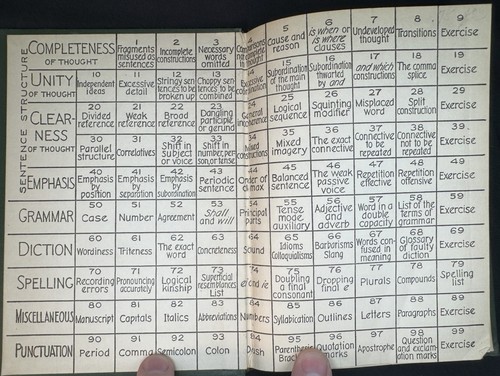 SENTENCE STRUCTURE
COMPLETENESS OF THOUGHT
1 Fragments misused as sentences
2 Incomplete constructions
3 Necessary words omitted
4 Comparisons not complete
5 Cause and reason
6 is when or is where clauses
7 Undeveloped thought
8 Transitions
9 Exercise
UNITY OF THOUGHT
10 Independent ideas
11 Excessive detail
12 Stringy sentences to be broken up
13 Choppy sentences to be combined
15 Subordination of the main thought
16 Subordination thwarted by and
17 and which constructions
18 The comma splice
19 Exercise
CLEARNESS OF THOUGHT
20 Divided reference
21 Weak reference
22 Broad reference
23 Dangling participle or gerund
24 General
25 Logical sequence
26 Squinting modifier
27 Misplaced word
28 Split construction
29 Exercise
30 Parallel structure
31 Correlatives
32 Shift in subject or voice
33 Shift in number, person, or tense
34 Mixed constructions
35 Mixed imagery
36 The exact connective
37 Connective to be repeated
38 Connective not to be repeated
39 Exercise
EMPHASIS
40 Emphasis by position
41 Emphasis by separation
42 Emphasis by subordination
43 Periodic sentence
44 Order of climax
45 Balanced sentence
46 The weak passive voice
47 Repetition effective
48 Repetition offensive
49 Exercise
GRAMMAR
50 Case
51 Number
52 Agreement
53 Shall and will
54 Principal parts
55 Tense mode auxiliary
56 Adjective and adverb
57 Word in a double capacity
58 List of the terms of grammar
59 Exercise
DICTION
60 Wordiness
61 Triteness
62 The exact word
63 Concreteness
64 Sound
65 Idioms Colloquialisms
66 Barbarisms Slang
67 Words confused in meaning
68 Glossary of faulty diction
69 Exercise
SPELLING
70 Recording errors
71 Pronouncing accurately
72 Logical kinship
73 Superficial resemblances List
74 ei and ie
75 Doubling a final consonant
76 Dropping final e
77 Plurals
78 Compounds
79 Spelling list
MISCELLANEOUS
80 Manuscript
81 Capitals
82 Italics
83 Abbreviations
84 Numbers
85 Syllabication
86 Outlines
87 Letters
88 Paragraphs
89 Exercise
PUNCTUATION
90 Period
91 Comma
92 Semicolon
93 Colon
94 Dash
95 Parenthesis
96 Quotation marks
97 Apostrophe
98 Question and exclamation marks
99 Exercise